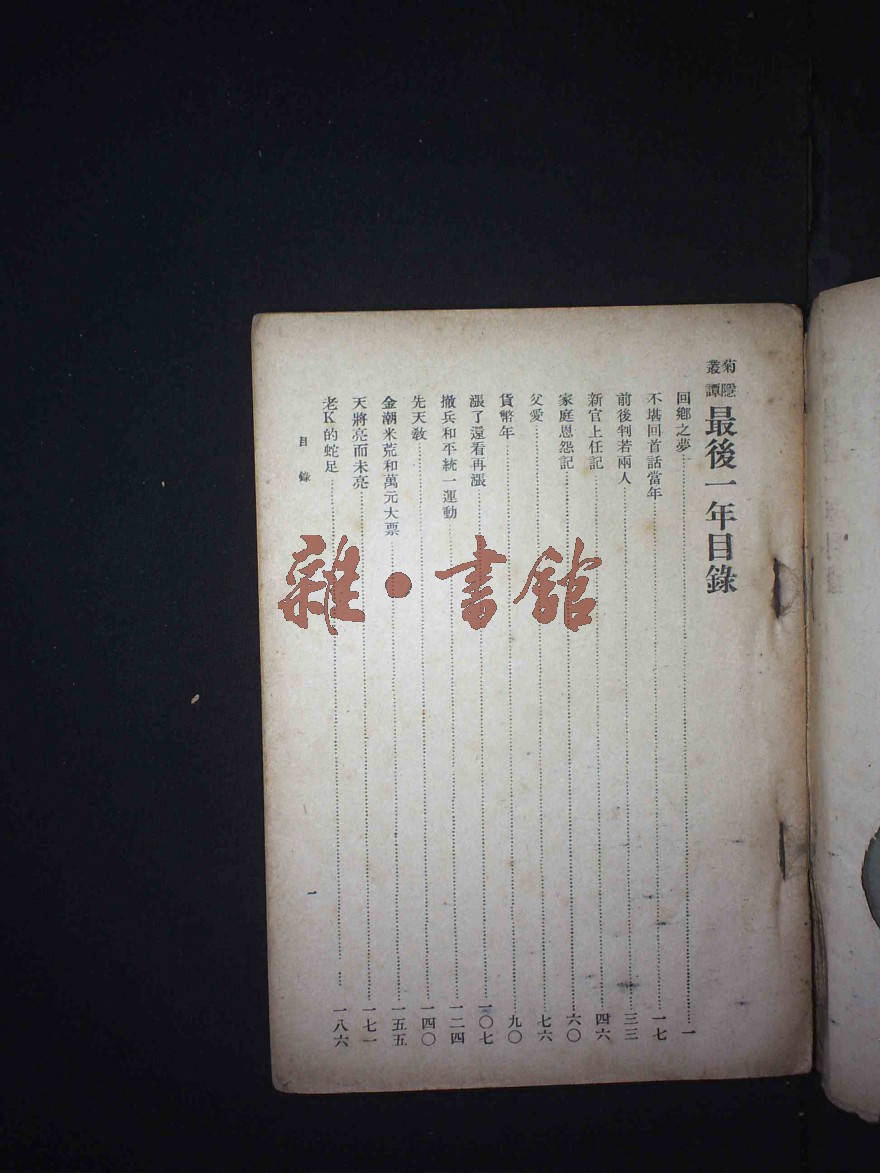 菊隱叢譚
最後一年目錄
回鄉之夢……一
不堪回首話當年……一七
前後判若兩人……三三
新官上任記……四六
家庭恩怨記……六〇
父愛……七六
貨幣年……九〇
漲了還看再漲……一〇七
撤兵和平統一運動……一二四
先天教……一四〇
金潮米荒和萬元大票……一五五
天將亮而未亮……一七一
老K的蛇足……一八六
目錄
一
雜·書館